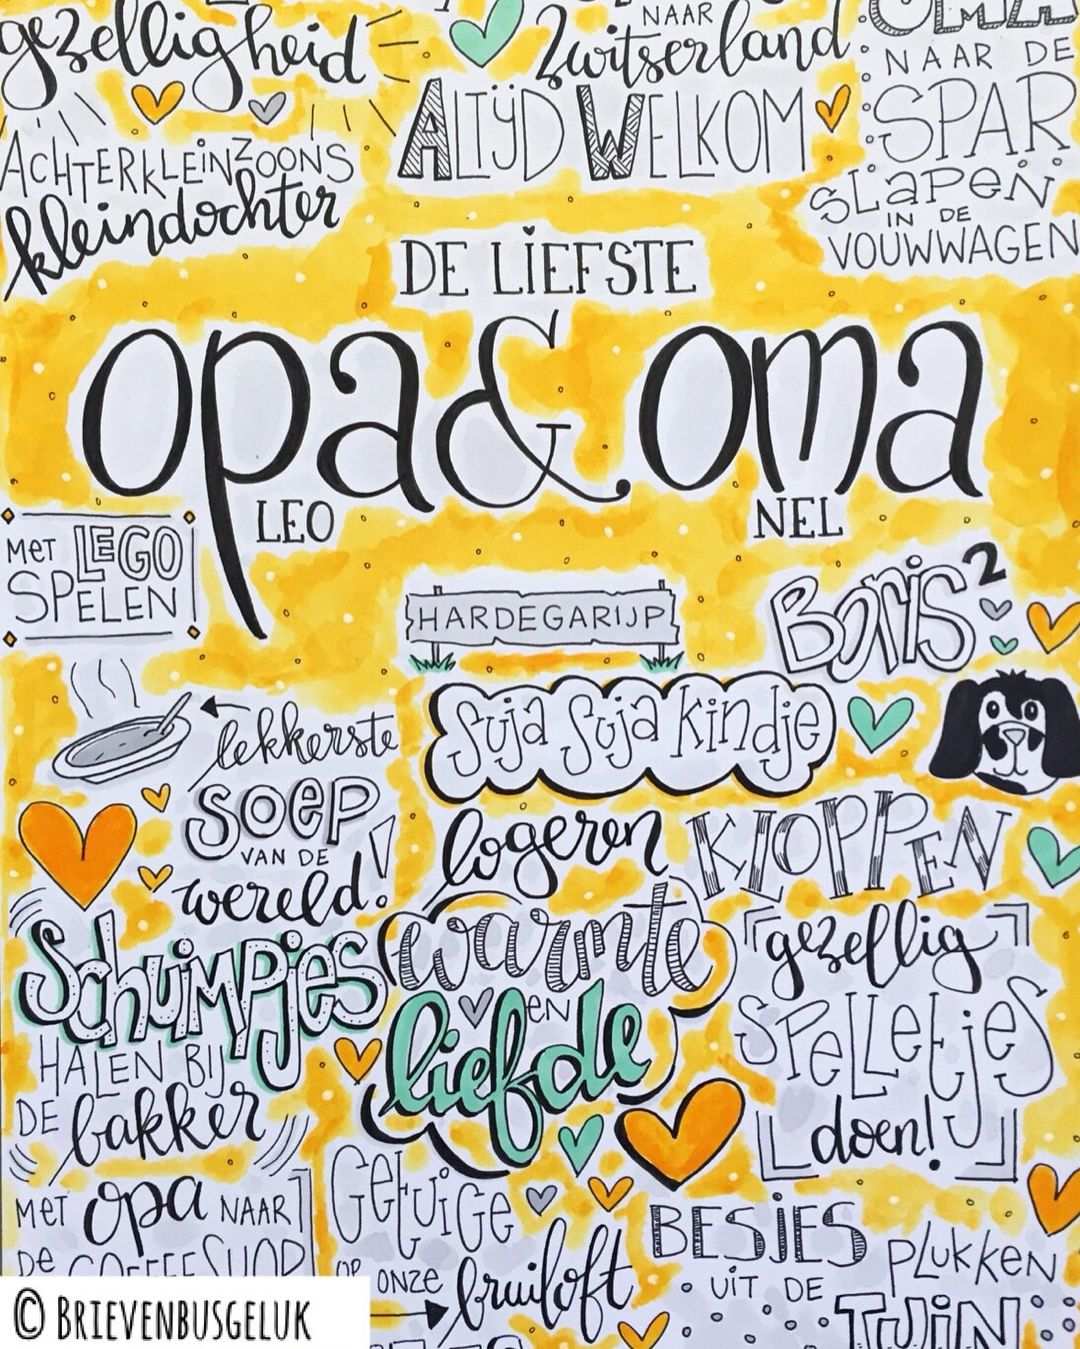 gezelligheid
ACHTERKLEINZOONS
kleindochter
NAAR
Zwitserland
ALTIJD WELKOM
OMA
NAAR DE
SPAR
SLAPEN
IN DE
VOUWWAGEN
DE LIEFSTE
opa & oma
LEO
NEL
MET LEGO
SPELEN
HARDEGARIJP
BORIS 2
Suja Suja Kindje
lekkerste
SOEP
VAN DE
wereld!
logeren
KLOPPEN
Schuimpjes
HALEN BIJ
DE bakker
warmte
EN
liefde
gezellig
SPELLETJES
doen!
MET opa NAAR
DE COFFEESHOP
GETUIGE
OP ONZE
bruiloft
BESJES
UIT DE
PLUKKEN
TUIN
© BRIEVENBUSGELUK